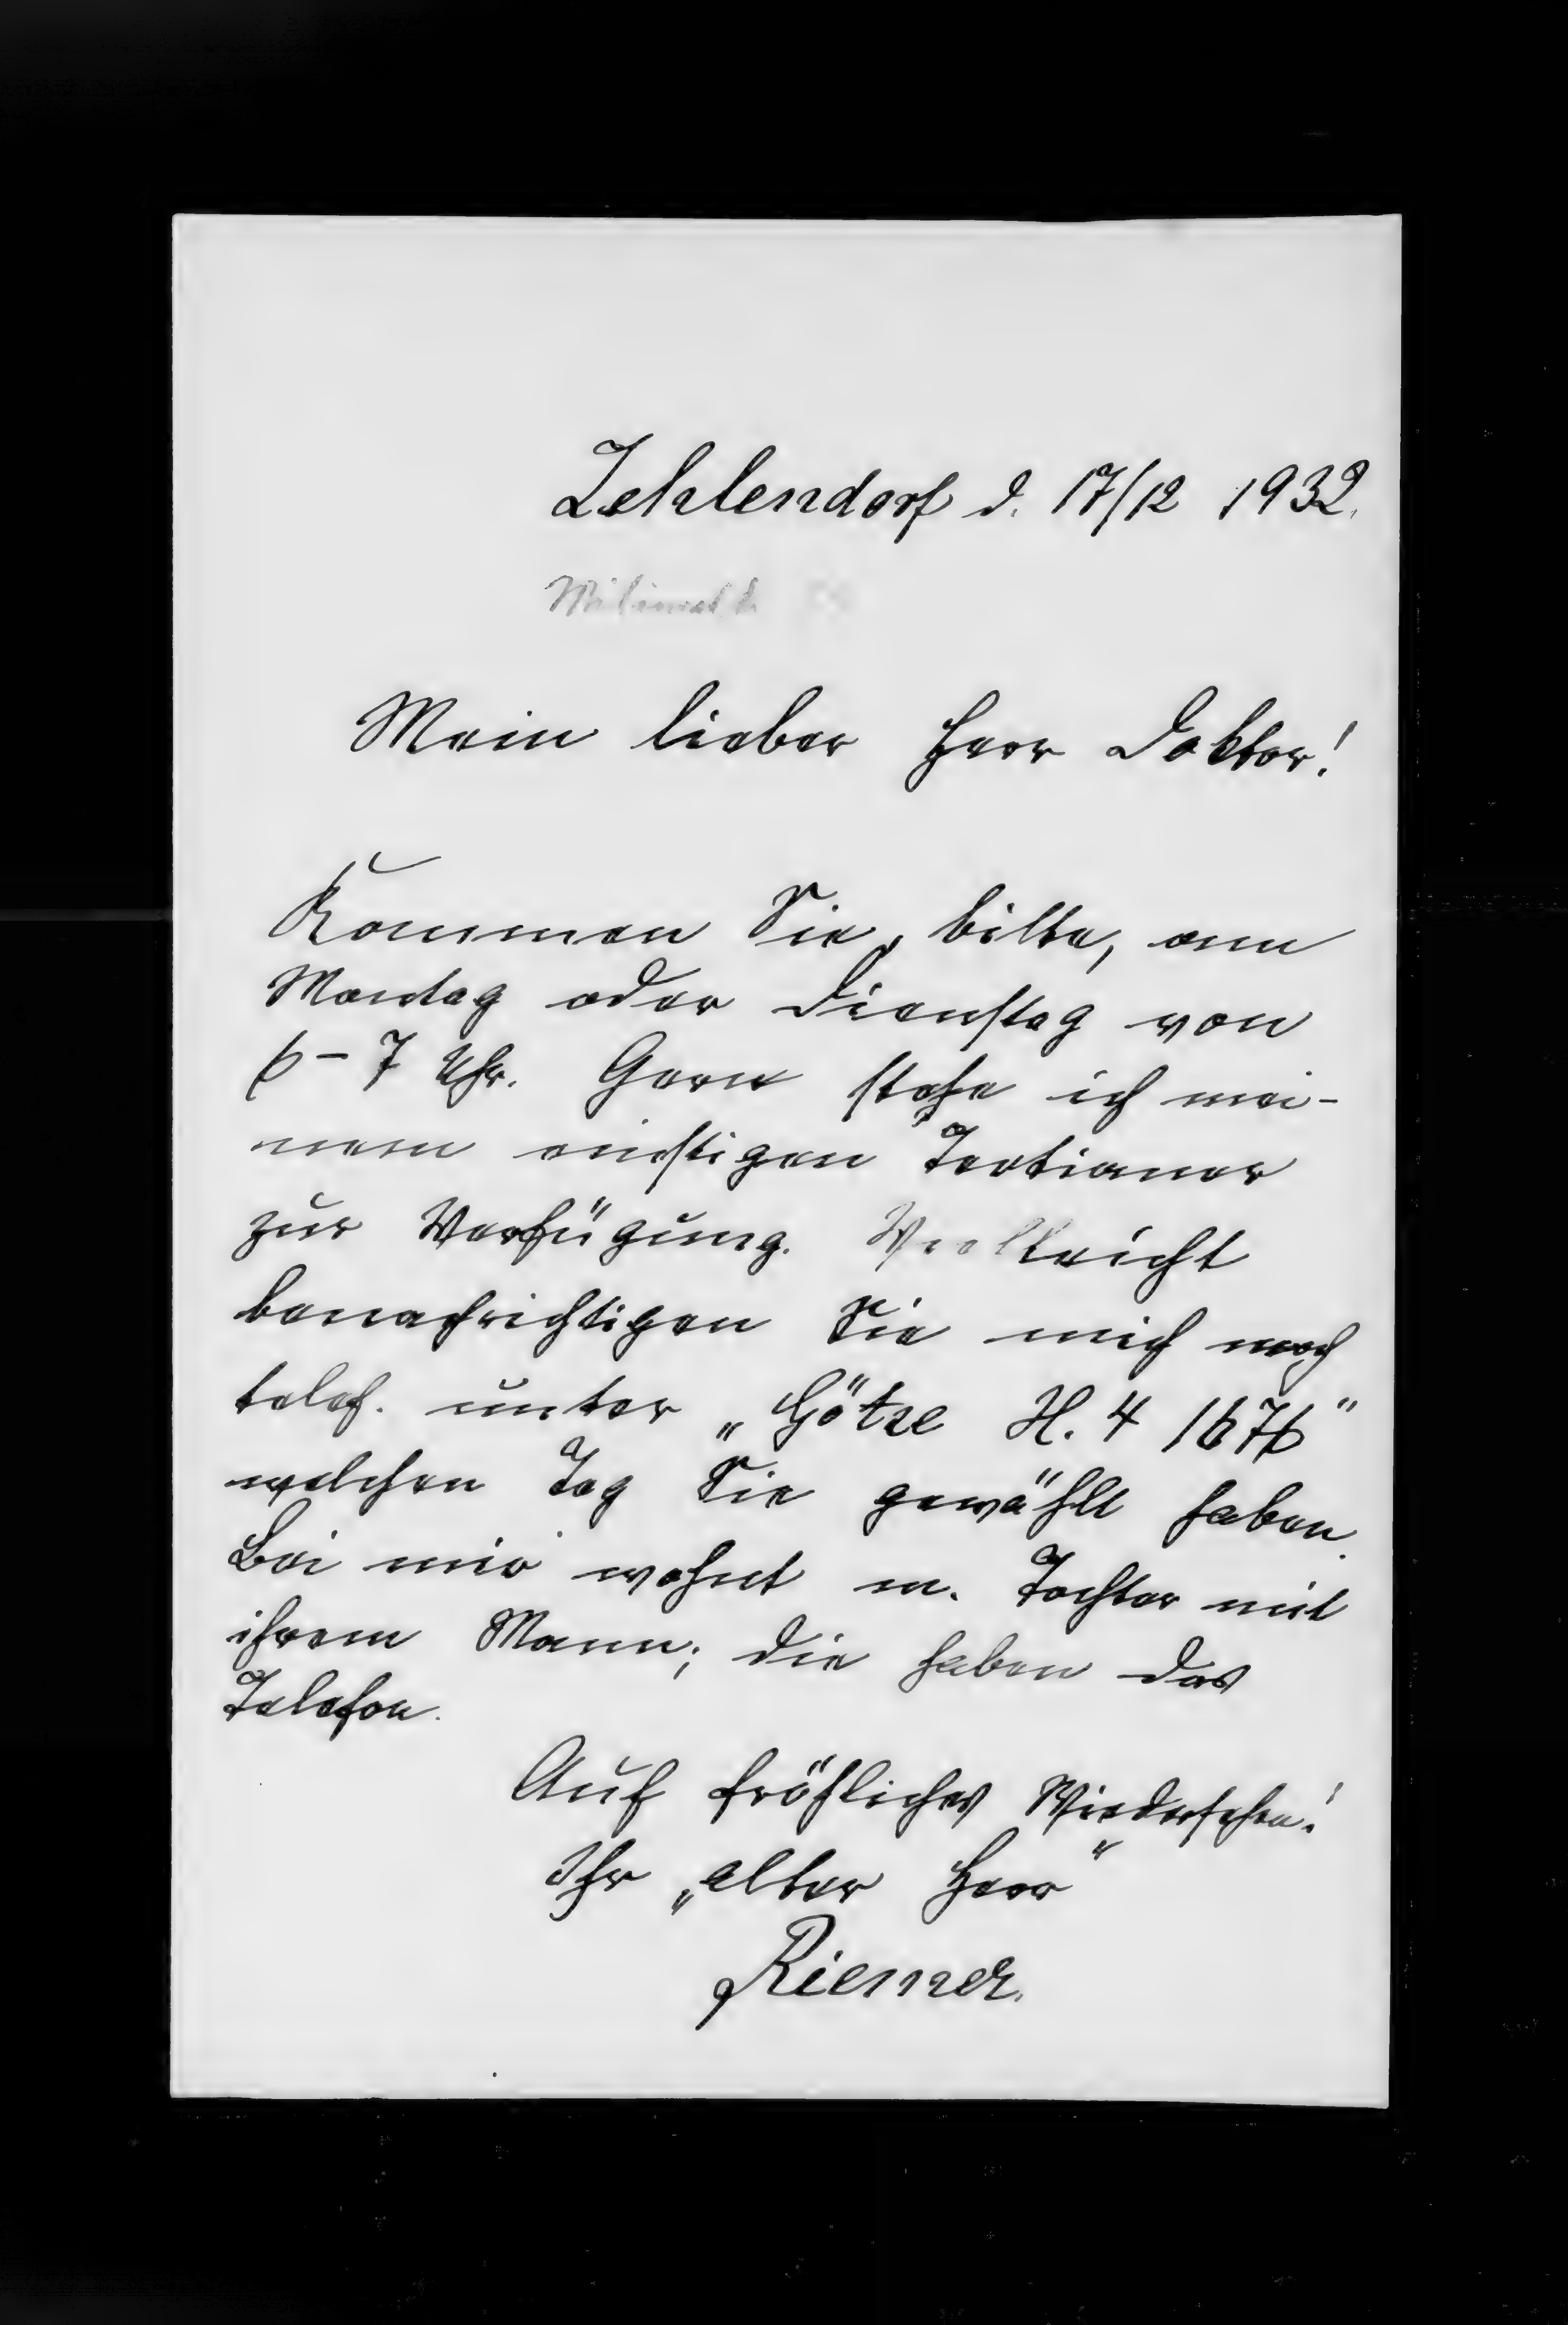 Zehlendorf d. 17/12 1932.
Mein lieber Herr Doktor!
Kommen Sie, bitte, am
Montag oder Dienstag von
6-7 Uhr. Gern stehe ich mei-
nem einstigen Tertianer
zur Verfügung. Vielleicht
benachrichtigen Sie mich noch
telef. unter „Götze H. 4 1676"
welchen Tag Sie gewählt haben.
Bei mir wohnt m. Tochter mit
ihrem Mann; die haben das
Telefon.
Auf fröhliches Wiedersehen!
Ihr „alter Herr"
Riemer.